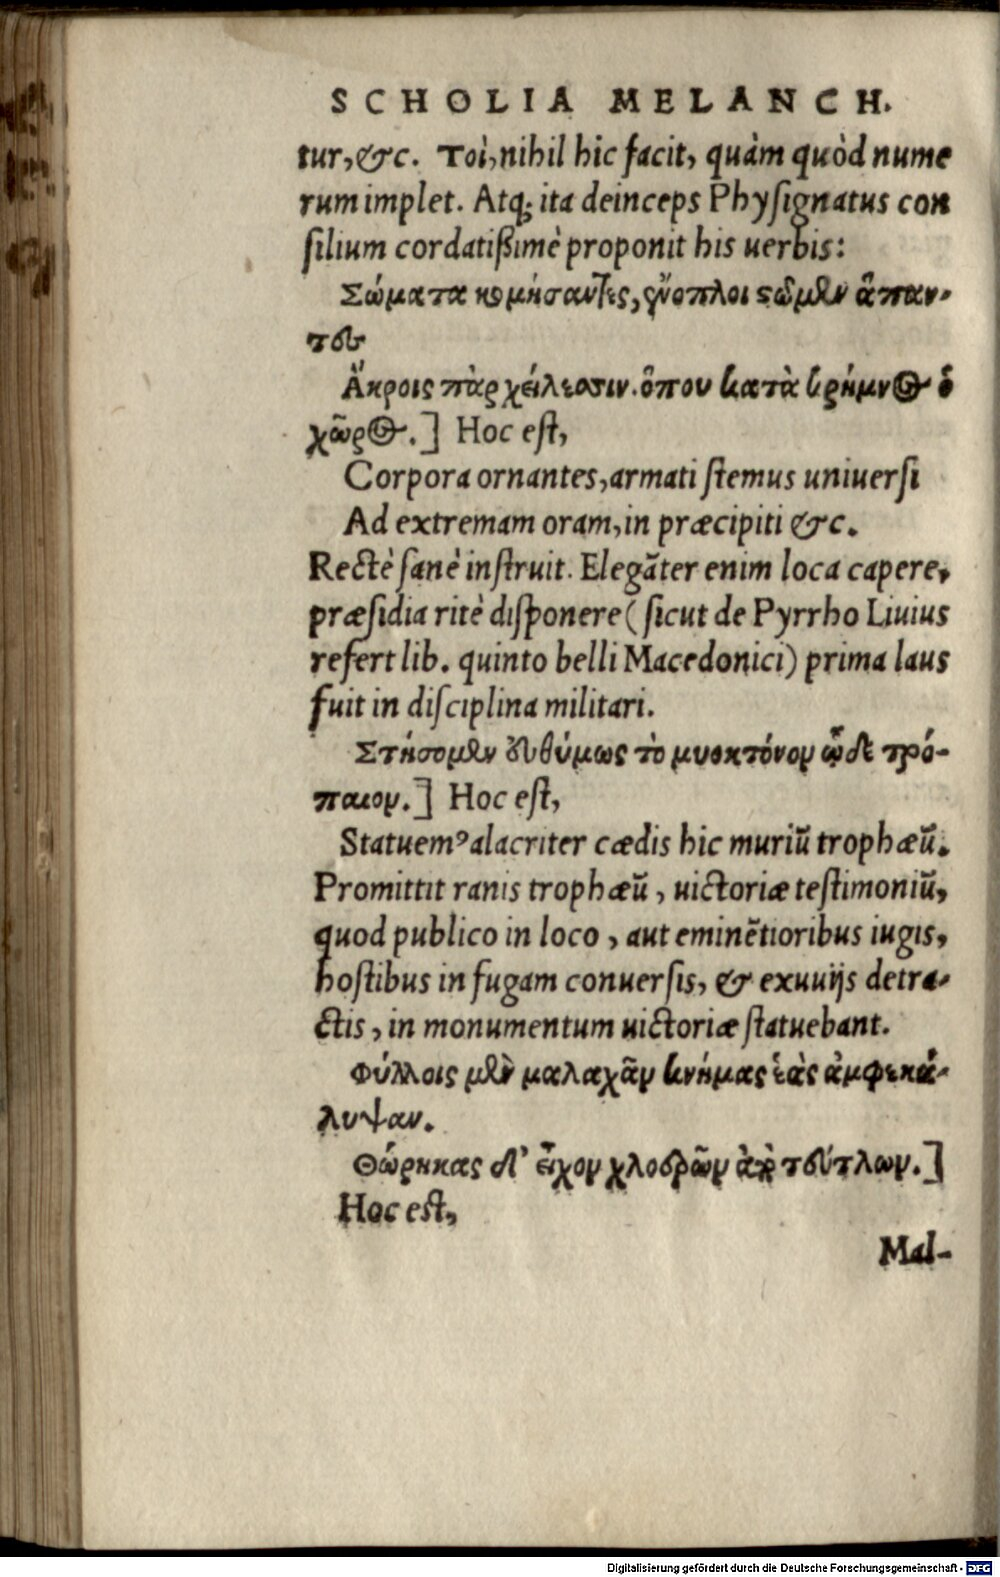 SCHOLIA MELANCH.
tur, &c. Τοὶ, nihil hic facit, quàm quòd nume
rum implet. Atq; ita deinceps Physignatus con
silium cordatißimè proponit his uerbis:
Σώματα κοσμήσαντες, ἔνοπλοι στῶμεν ἅπαν-
τες
Ἄκροις πὰρ χείλεσσιν. ὅπου κατὰ κρήμνος ὁ
χῶρος.] Hoc est,
Corpora ornantes, armati stemus uniuersi
Ad extremam oram, in præcipiti &c.
Rectè sanè instruit. Elegãter enim loca capere,
præsidia ritè disponere (sicut de Pyrrho Liuius
refert lib. quinto belli Macedonici) prima laus
fuit in disciplina militari.
Στήσομεν εὐθύμως τὸ μυοκτόνον ὧδε τρό-
παιον.] Hoc est,
Statuemꝰ alacriter cædis hic muriũ trophæũ.
Promittit ranis trophæũ, uictoriæ testimoniũ,
quod publico in loco, aut eminẽtioribus iugis,
hostibus in fugam conuersis, & exuuijs detra-
ctis, in monumentum uictoriæ statuebant.
Φύλλοις μὲν μαλαχᾶν κνήμας ἑὰς ἀμφεκά-
λυψαν.
Θώρηκας δ' εἶχον χλοερῶν ἀπὸ τεύτλων.]
Hoc est,
Mal-
Digitalisierung gefördert durch die Deutsche Forschungsgemeinschaft - DFG